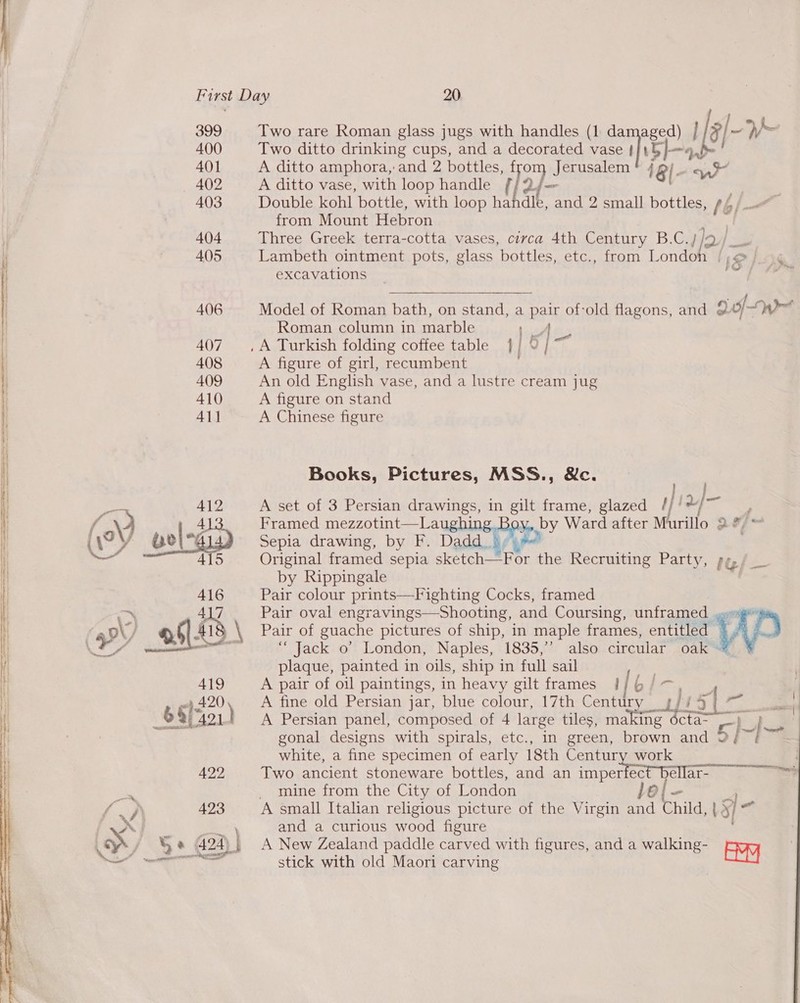 First Day 20
399 Two rare Roman glass jugs with handles (1 damaged)
400 Two ditto drinking cups, and a decorated vase
401 A ditto amphora, and 2 bottles, from Jerusalem
402 A ditto vase, with loop handle
403 Double kohl bottle, with loop handle, and 2 small bottles,
from Mount Hebron
404 Three Greek terra-cotta vases, circa 4th Century B.C.
405 Lambeth ointment pots, glass bottles, etc., from London
excavations
406 Model of Roman bath, on stand, a pair of old flagons, and
Roman column in marble
407 A Turkish folding coffee table
408 A figure of girl, recumbent
409 An old English vase, and a lustre cream jug
410 A figure on stand
411 A Chinese figure
Books, Pictures, MSS., &c.
412 A set of 3 Persian drawings, in gilt frame, glazed
413 Framed mezzotint—Laughing Boy, by Ward after Murillo
414 Sepia drawing, by F. Dadd
415 Original framed sepia sketch—For the Recruiting Party,
by Rippingale
416 Pair colour prints—Fighting Cocks, framed
417 Pair oval engravings—Shooting, and Coursing, unframed
418 Pair of guache pictures of ship, in maple frames, entitled
“Jack o’ London, Naples, 1835,” also circular oak
plaque, painted in oils, ship in full sail
419 A pair of oil paintings, in heavy gilt frames
420 A fine old Persian jar, blue colour, 17th Century
421 A Persian panel, composed of 4 large tiles, making octa-
gonal designs with spirals, etc., in green, brown and
white, a fine specimen of early 18th Century work
422 Two ancient stoneware bottles, and an imperfect bellar-
mine from the City of London
423 A small Italian religious picture of the Virgin and Child,
and a curious wood figure
424 A New Zealand paddle carved with figures, and a walking-
stick with old Maori carving